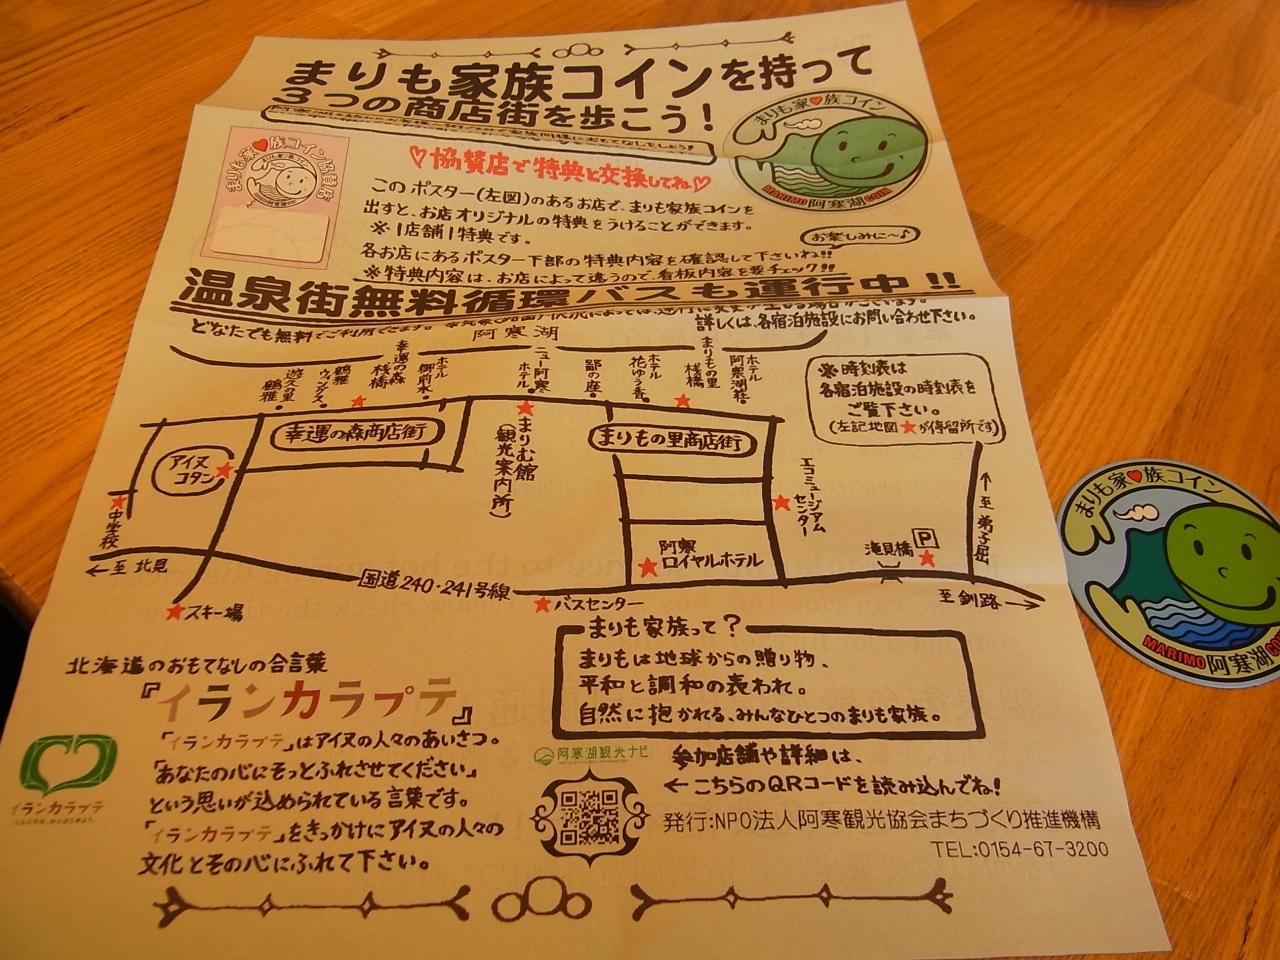 まりも家族コインを持って
3つの商店街を歩こう!
まりも家♥族コイン
MARIMO 阿寒湖 COIN
まりも家♥族コイン協賛店
♡協賛店で特典と交換してね♡
このポスター(左図)のあるお店で、まりも家族コインを
出すと、お店オリジナルの特典をうけることができます。
※1店舗1特典です。
お楽しみに~♪
各お店にあるポスター下部の特典内容を確認して下さいね!!
※特典内容は、お店によって違うので看板内容を要チェック!!
温泉街無料循環バスも運行中!!
どなたでも無料でご利用できます。
詳しくは、各宿泊施設にお問い合わせ下さい。
阿寒湖
鶴雅
遊久の里
鶴雅
ウィングス
幸運の森
桟橋
ホテル
御前水
ニュー阿寒
ホテル
鄙の座
ホテル
花ゆう香
まりもの里
桟橋
ホテル
阿寒湖荘
※時刻表は
各宿泊施設の時刻表を
ご覧下さい。
(左記地図★が停留所です)
幸運の森商店街
まりもの里商店街
アイヌ
コタン
★まりむ館
(観光案内所)
★エコミュージアム
センター
★中学校
←至北見
阿寒
★ロイヤルホテル
滝見橋
P
↑至弟子屈
国道240・241号線
★スキー場
★バスセンター
至釧路→
まりも家族って?
まりもは地球からの贈り物、
平和と調和の表われ。
自然に抱かれる、みんなひとつのまりも家族。
北海道のおもてなしの合言葉
『イランカラㇷ゚テ』
「イランカラㇷ゚テ」はアイヌの人々のあいさつ。
「あなたの心にそっとふれさせてください」
という思いが込められている言葉です。
「イランカラㇷ゚テ」をきっかけにアイヌの人々の
文化とその心にふれて下さい。
イランカラㇷ゚テ
阿寒湖観光ナビ
参加店舗や詳細は、
←こちらのQRコードを読み込んでね!
発行:NPO法人阿寒観光協会まちづくり推進機構
TEL:0154-67-3200
まりも家♥族コイン
MARIMO 阿寒湖 CO